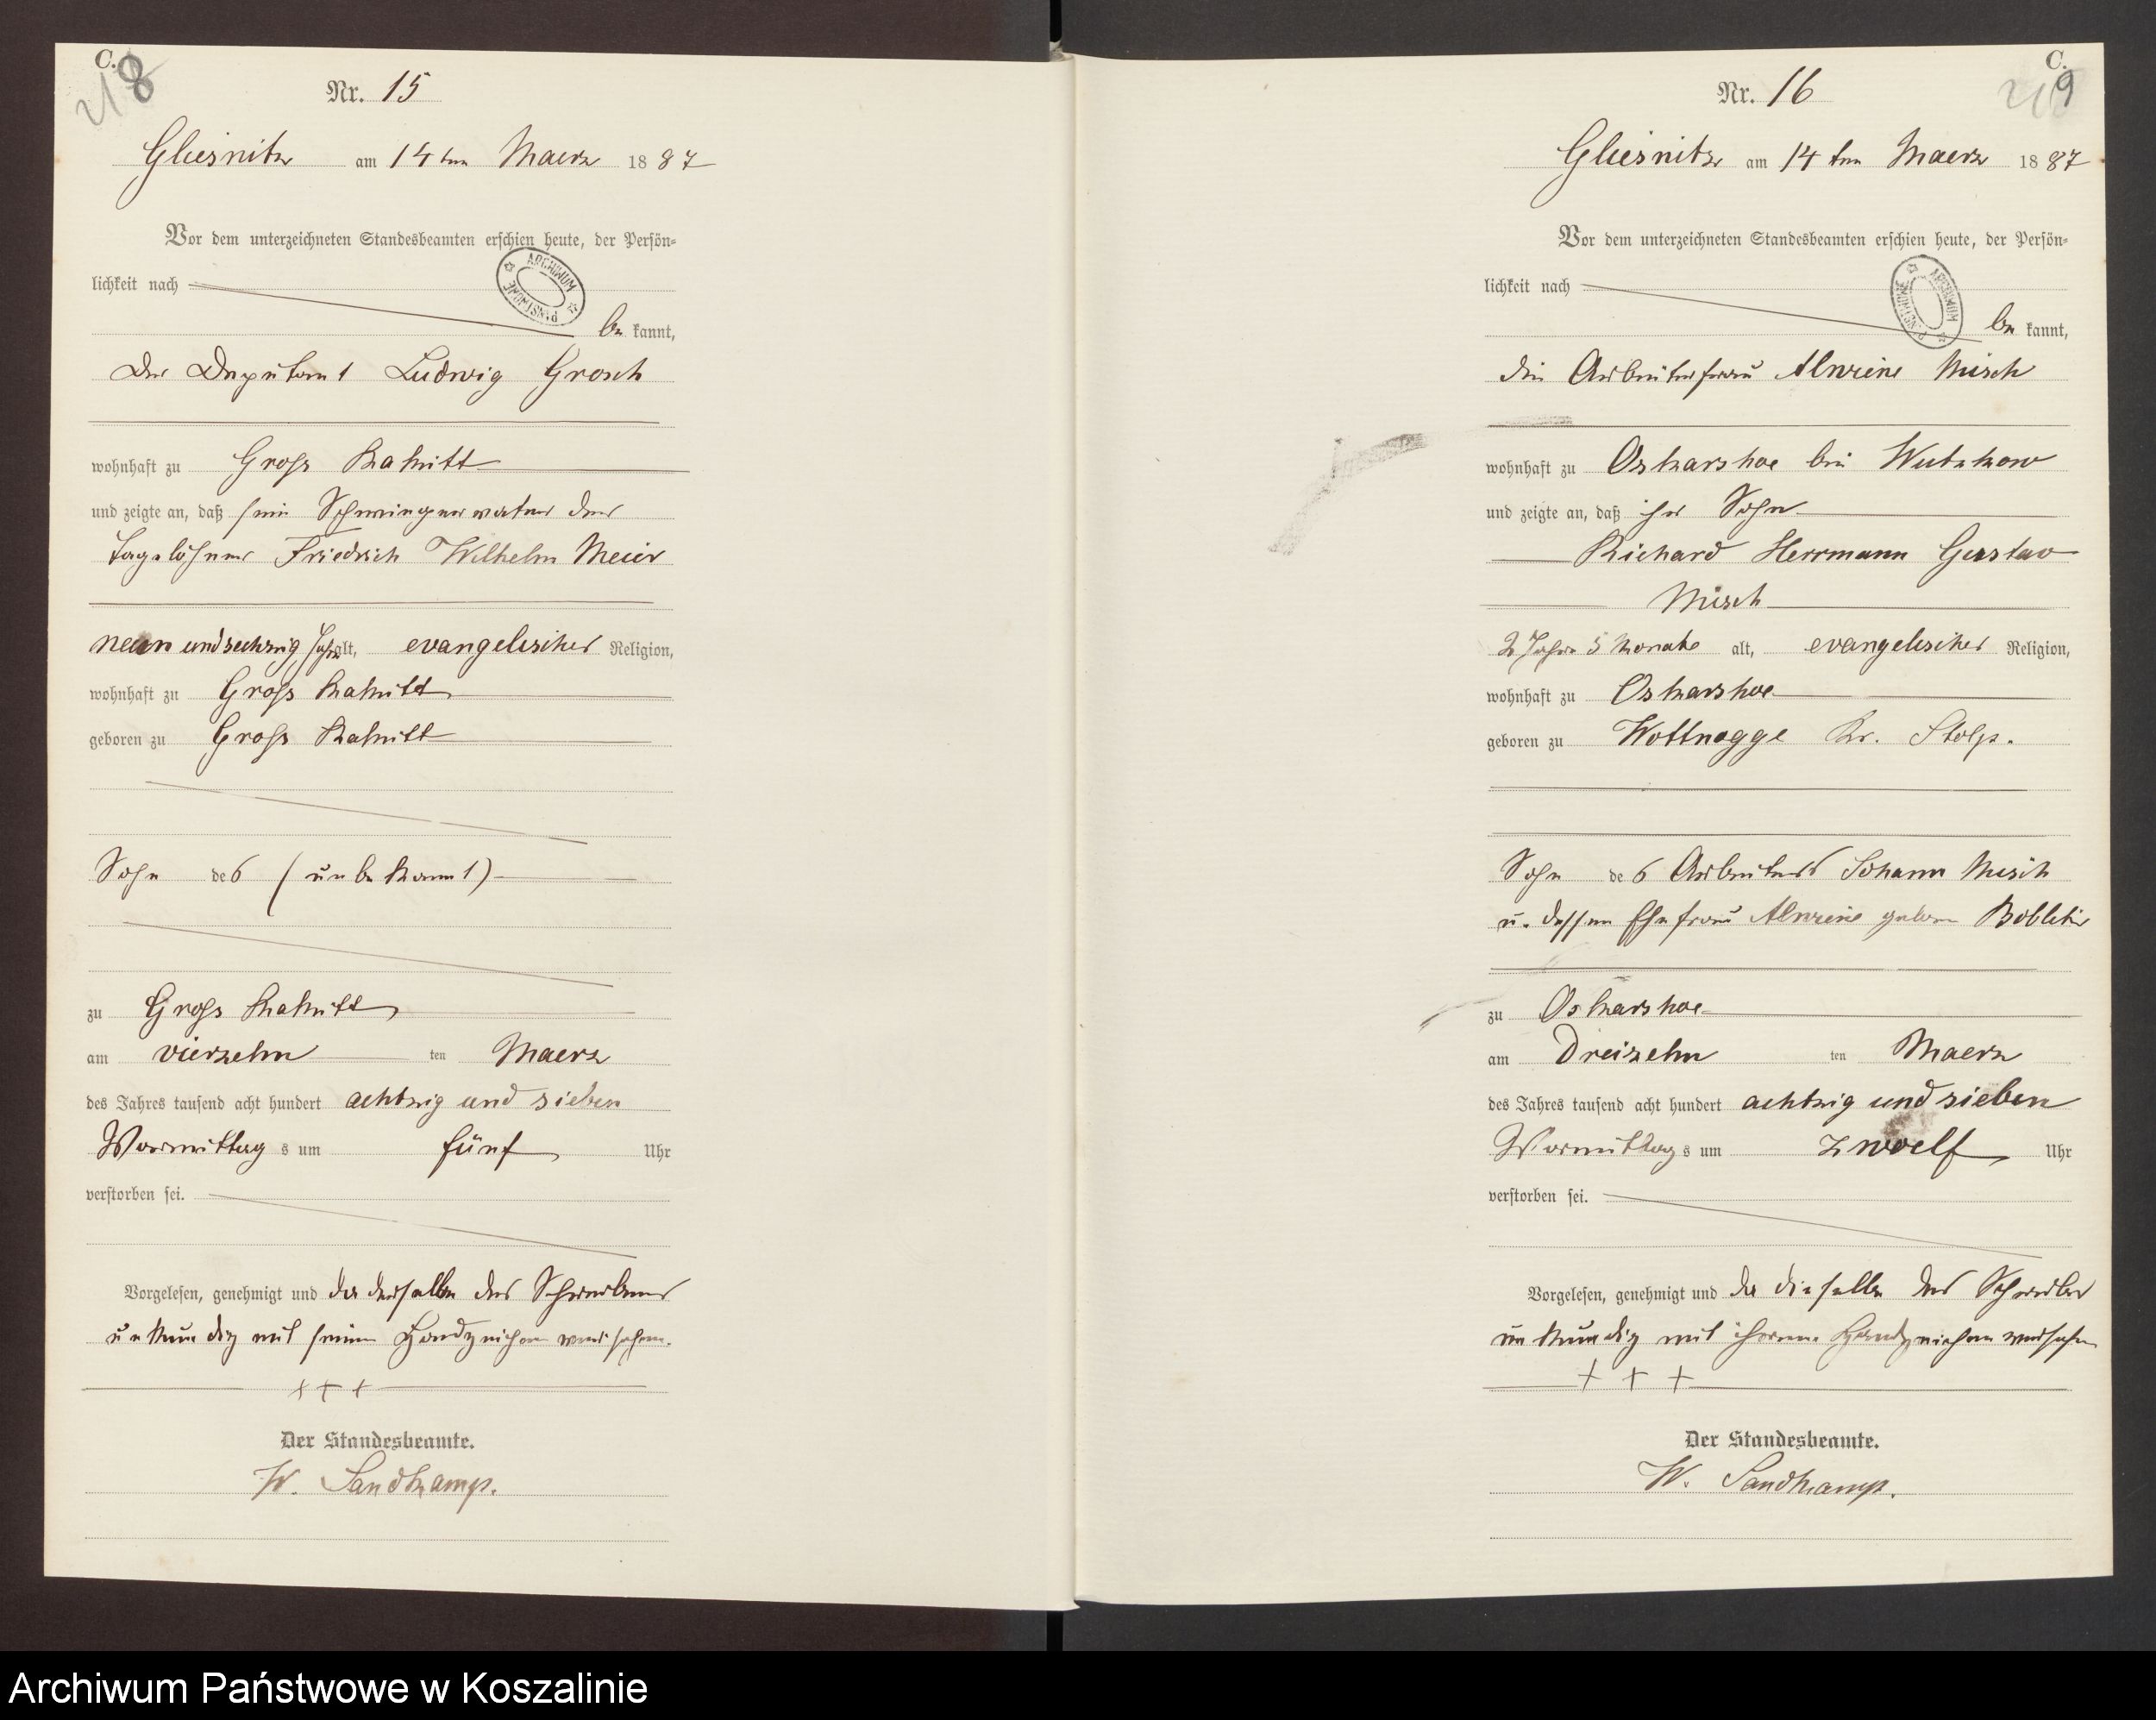 C.
8
Nr. 15
Gliesnitz am 14ten Maerz 1887
Vor dem unterzeichneten Standesbeamten erschien heute, der Persön-
lichkeit nach
ARCHIWUM PAŃSTWOWE
be kannt,
der Deputant Ludwig Grosch
wohnhaft zu Gross Rakitt
und zeigte an, daß sein Schwiegervater der
Tagelöhner Friedrich Wilhelm Meier
neun und sechzig Jahr alt, evangelischer Religion,
wohnhaft zu Gross Rakitt
geboren zu Gross Rakitt
Sohn des (unbekannt)
zu Gross Rakitt
am vierzehn ten Maerz
des Jahres tausend acht hundert achtzig und sieben
Vormittag s um fünf Uhr
verstorben sei.
Vorgelesen, genehmigt und da derselbe des Schreibens
unkundig mit seinem Handzeichen versehen.
+++
Der Standesbeamte.
W. Sandkamp.
C.
9
Nr. 16
Gliesnitz am 14ten Maerz 1887
Vor dem unterzeichneten Standesbeamten erschien heute, der Persön-
lichkeit nach
ARCHIWUM PAŃSTWOWE
be kannt,
die Arbeiterfrau Alwine Misch
wohnhaft zu Oskarshoe bei Wutzkow
und zeigte an, daß ihr Sohn
Richard Herrmann Gustav
Misch
2 Jahre 5 Monate alt, evangelischer Religion,
wohnhaft zu Oskarshoe
geboren zu Wottnogge Kr. Stolp.
Sohn des Arbeiters Johann Misch
u. dessen Ehefrau Alwine geborne
zu Oskarshoe
am Dreizehn ten Maerz
des Jahres tausend acht hundert achtzig und sieben
Vormittag s um zwoelf Uhr
verstorben sei.
Vorgelesen, genehmigt und da dieselbe des Schreiben
unkundig mit ihrem Handzeichen versehen
+ + +
Der Standesbeamte.
W. Sandkamp.
Archiwum Państwowe w Koszalinie